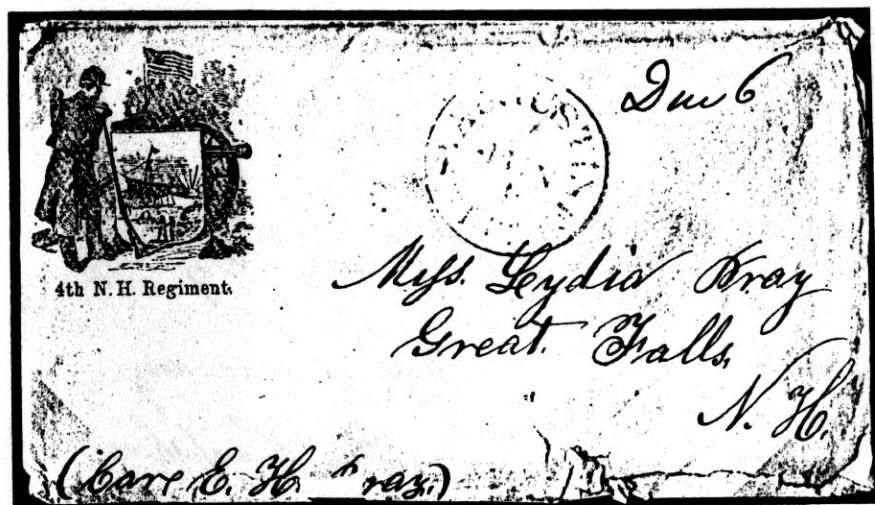 Due 6
4th N. H. Regiment.
Miss. Lydia Pray
Great Falls,
N. H.
(Care E. H. Pray.)